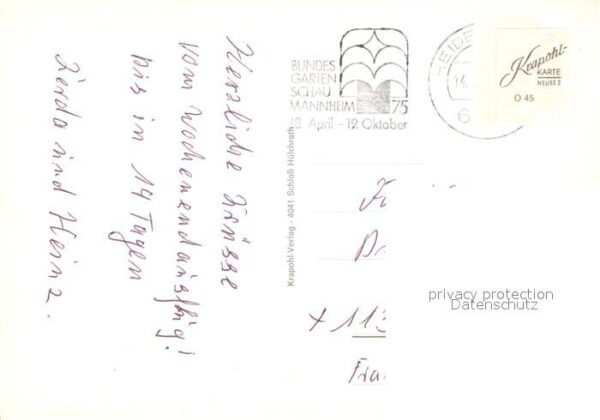 Herzliche Grüsse
vom Wochenendausflug!
Bis in 14 Tagen
Gerda und Heinz.
BUNDES
GARTEN
SCHAU
MANNHEIM 75
18. April - 19. Oktober
HEIDE
14.
6
Krapohl-
KARTE
NEUSS 2
O 45
Krapohl-Verlag · 4041 Schloß Hülchrath
privacy protection
Datenschutz